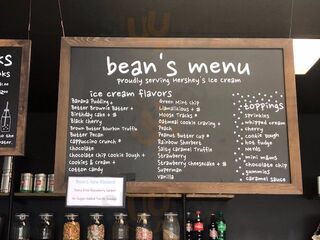 bean's menu
proudly serving Hershey's ice cream
ice cream flavors
Banana Pudding
Butter Brownie Batter +
Birthday cake + #
Black Cherry
Brown Butter Bourbon Truffle
Butter Pecan
cappuccino crunch *
chocolate
chocolate chip Cookie Dough +
cookies & cream +
cotton candy
Green Mint chip
Llamalicious + #
Moose Tracks *
Oatmeal cookie craving +
Peach
Peanut Butter Cup *
Rainbow Sherbert
Salty Caramel Truffle
Strawberry
Strawberry cheesecake + #
Superman
Vanilla
toppings
sprinkles
whipped cream
cherry
cookie dough
hot fudge
nerds
mini m&ms
chocolate chip
gummies
caramel sauce